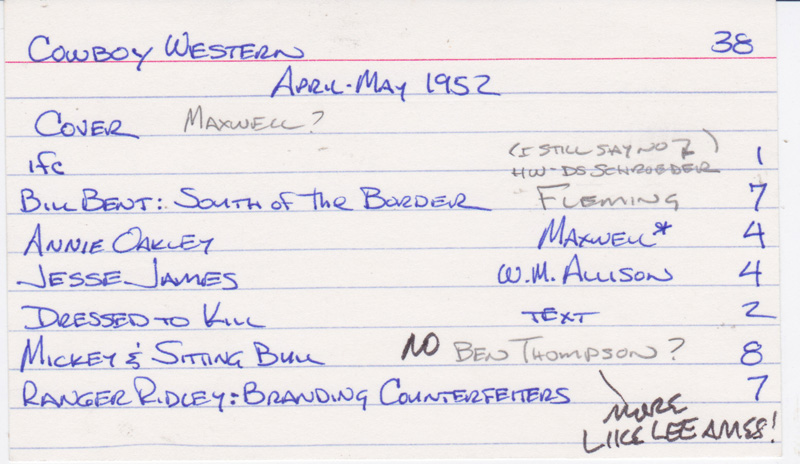 COWBOY WESTERN 38
APRIL-MAY 1952
COVER MAXWELL?
(I STILL SAY NO
ifc HW-DS SCHROEDER 1
BILL BENT: SOUTH OF THE BORDER FLEMING 7
ANNIE OAKLEY MAXWELL* 4
JESSE JAMES W.M. ALLISON 4
DRESSED TO KILL TEXT 2
MICKEY & SITTING BULL NO BEN THOMPSON? 8
RANGER RIDLEY: BRANDING COUNTERFEITERS 7
MORE
LIKE LEE AMES!